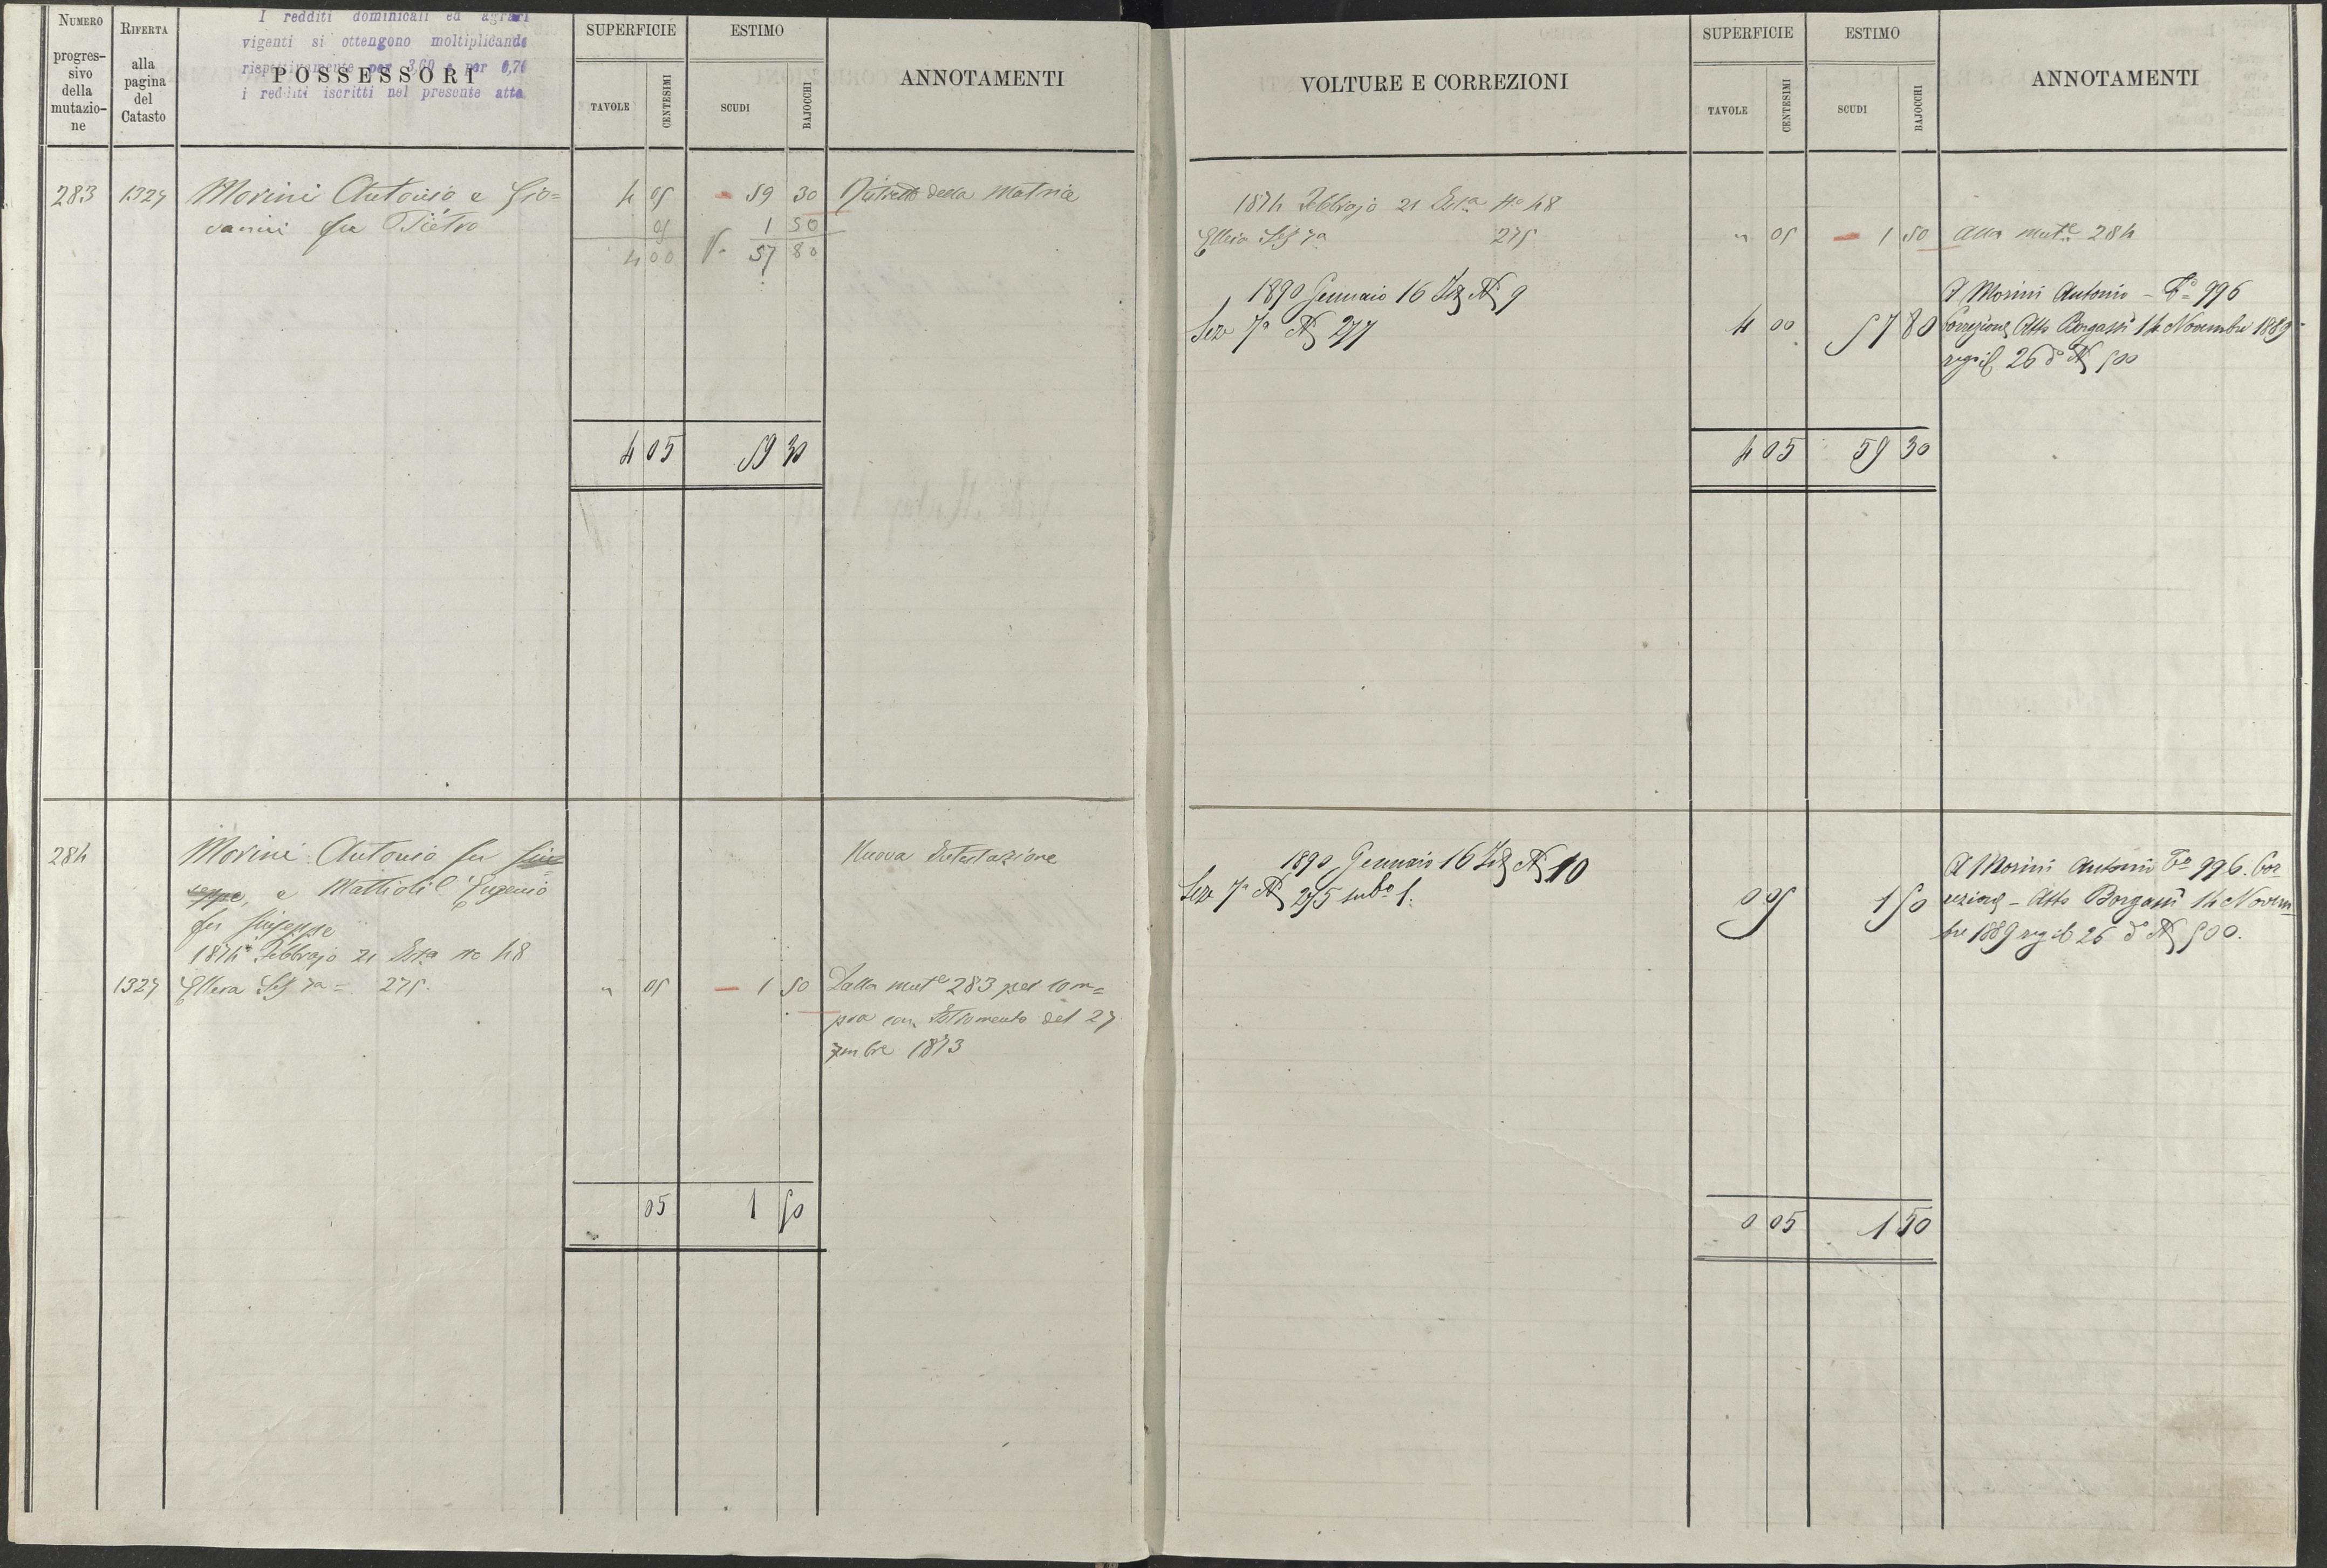 NUMERO
progres-
sivo
della
mutazio-
ne
RIFERTA
alla
pagina
del
Catasto
I redditi dominicali ed agrari
vigenti si ottengono moltiplicando
rispettivamente per 3,60 e per 0,70
i redditi iscritti nel presente atto
POSSESSORI
SUPERFICIE
TAVOLE
CENTESIMI
ESTIMO
SCUDI
BAJOCCHI
ANNOTAMENTI
283 1327 Morini Antonio e Gio= 4 05 59 30 della Matrice
vanni fu Pietro 05 1 50
4 00 57 80
4 05 59 30
284 Morini Antonio fu Giu= Nuova Intestazione
seppe, e Mattioli Eugenio
fu Giuseppe
1874 Febbrajo 21 No 48
1327 Ellera 7a = 275 " 05 1 50 Dalla mute 283 per com=
pra con Istromento del 27
1873
05 1 50
VOLTURE E CORREZIONI
SUPERFICIE
TAVOLE
CENTESIMI
ESTIMO
SCUDI
BAJOCCHI
ANNOTAMENTI
1874 Febbrajo 21 No 48
Ellera 7a 275 " 05 1 50 Alla mute 284
1890 Gennaio 16 N 9 A Morini Antonio - Fo 996
Sez 7a N 277 4 00 57 80 Correzione Atto Borgassi 14 Novembre 1889
26 do N 500
4 05 59 30
1890 Gennaio 16 N 10 A Morini Antonio Fo 996. Cor
Sez 7a N 275 subo 1. 0 05 1 50 rezione - Atto Borgassi 14 Novem
bre 1889 26 do N 500.
0 05 1 50